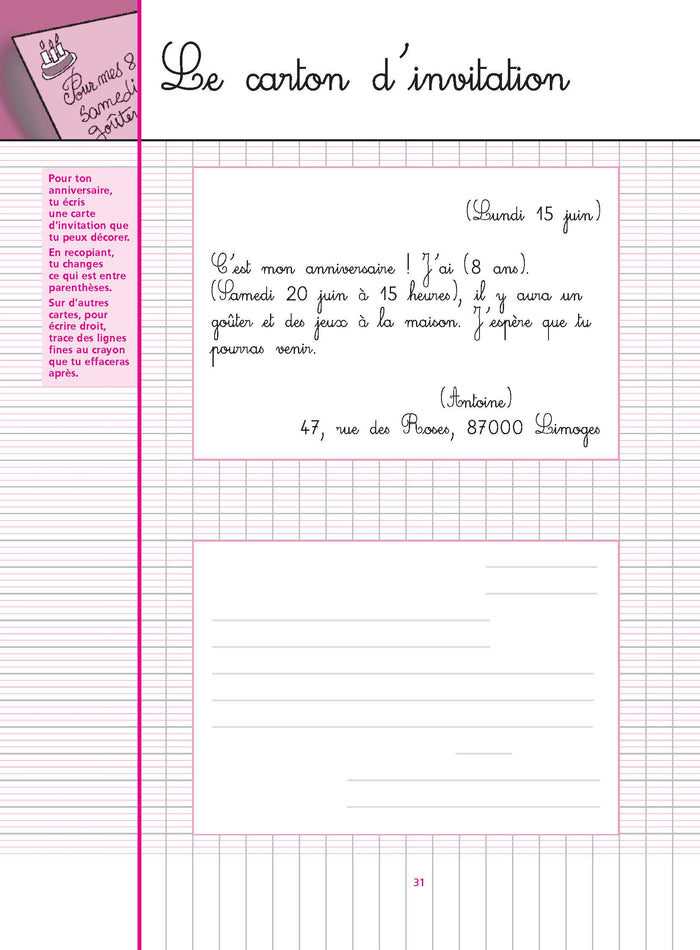 Pour mes 8
samedi
goûter
Le carton d'invitation
Pour ton
anniversaire,
tu écris
une carte
d'invitation que
tu peux décorer.
En recopiant,
tu changes
ce qui est entre
parenthèses.
Sur d'autres
cartes, pour
écrire droit,
trace des lignes
fines au crayon
que tu effaceras
après.
(Lundi 15 juin)
C'est mon anniversaire ! J'ai (8 ans).
(Samedi 20 juin à 15 heures), il y aura un
goûter et des jeux à la maison. J'espère que tu
pourras venir.
(Antoine)
47, rue des Roses, 87000 Limoges
31